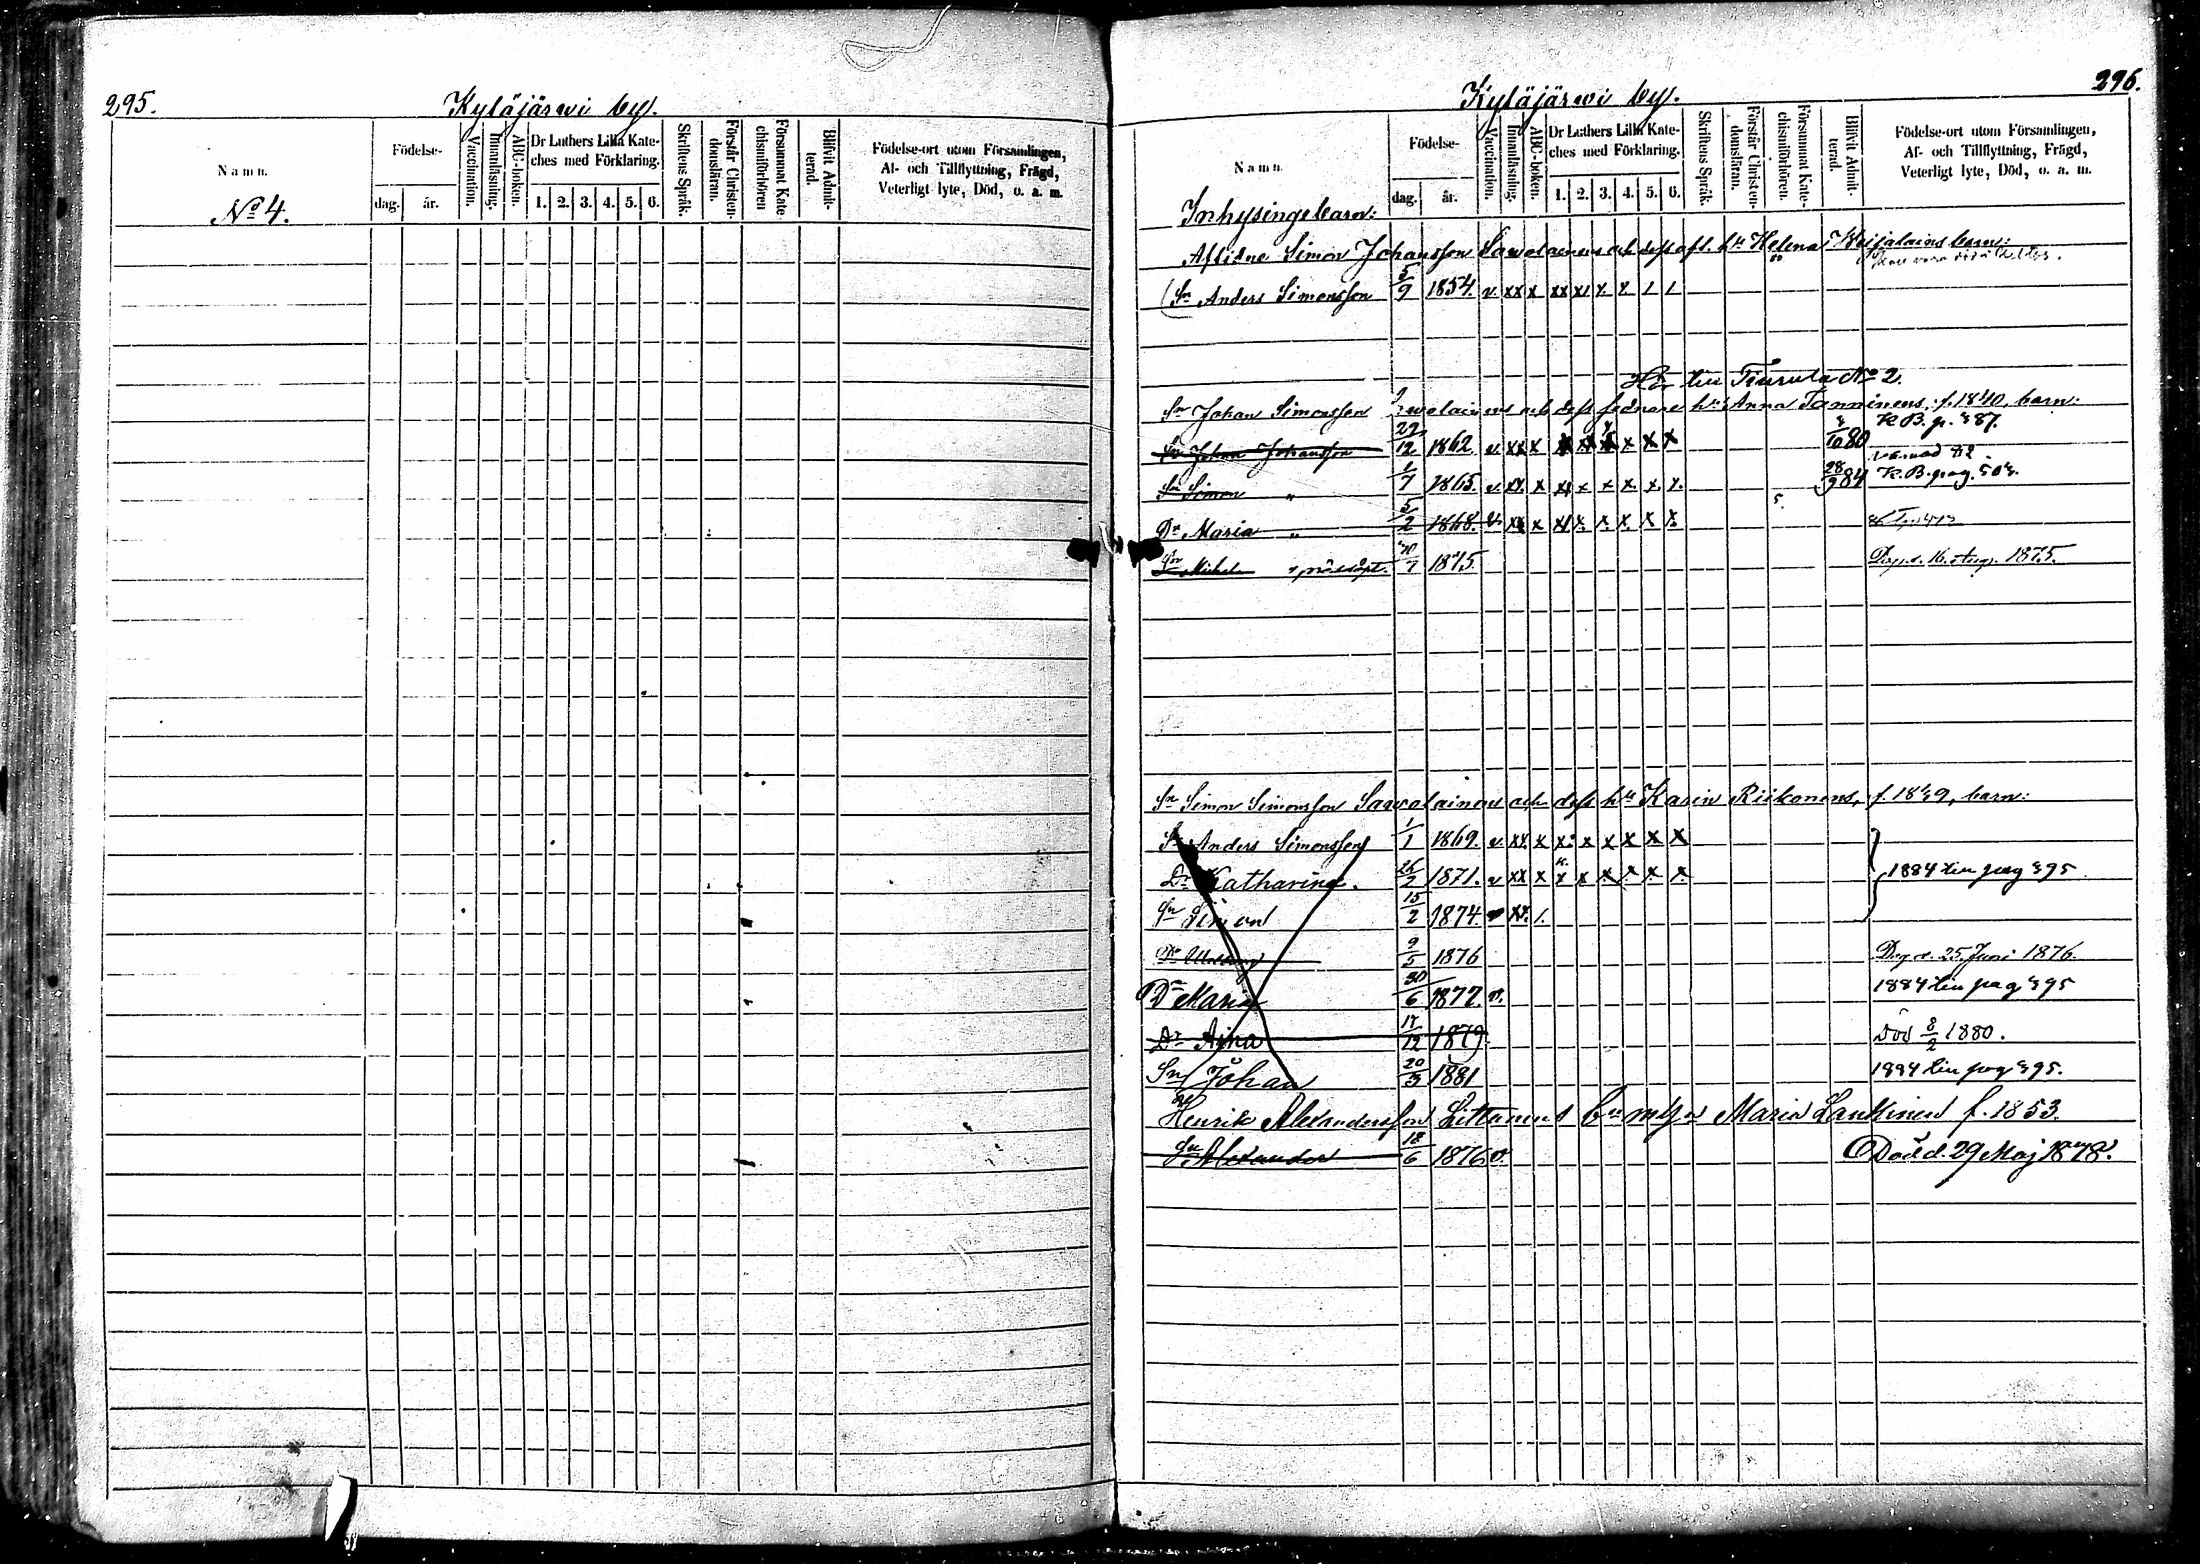 295.
Kyläjärwi by.
Namn.
Födelse-
dag.
år.
Vaccination.
Innanläsning.
ABC-boken.
Dr Luthers Lilla Kate-
ches med Förklaring.
1. 2. 3. 4. 5. 6.
Skriftens Språk.
Förstår Christen-
domsläran.
Försummat Kate
chismiförhören
Blifvit Admit-
terad.
Födelse-ort utom Församlingen,
Af- och Tillflyttning, Frägd,
Veterligt lyte, Död, o. a. m.
No 4.
296.
Kyläjärwi by.
Namn.
Födelse-
dag.
år.
Vaccination.
Innanläsning.
ABC-boken.
Dr Luthers Lilla Kate-
ches med Förklaring.
1. 2. 3. 4. 5. 6.
Skriftens Språk.
Förstår Christen-
domsläran.
Försummat Kate-
chismiförhören.
Blifvit Admit-
terad.
Födelse-ort utom Församlingen,
Af- och Tillflyttning, Frägd,
Veterligt lyte, Död, o. a. m.
Inhysingebarn:
Aflidne Simon Johansson Sawolainens och dess afl. hu Helena barn:
Sn Anders Simonsson 5/9 1854. v xx x xx x x x 1 1
Hör till Tiurula No 2.
Sn Johan Simonsson Sawolainens och dess sednare hus Anna Tanninens, f. 1840, barn:
Sn Johan Johansson 29/12 1862 v xx x x x x x x x 80 K.B. p. 387.
Sn Simon " 1/7 1865. v xx. x xx x x x. x. x. 28/9 84 K.B. pag. 503.
Dr Maria " 5/2 1868. v. xx x xx x. x. x. x x.
Sn Michel " 7 1875. Död d. 16 Aug. 1875.
Sn Simon Simonsson Sawolainens och dess hu Karin Riikonens, f. 1849, barn:
Sn Anders Simonsson 1/1 1869. v. xx. x x x x x x x
Dr Katharina. 26/2 1871. v xx x x x x x. x. x. 1884 till pag 395
Sn Simon 15/2 1874. v xx. 1.
Dr 9/5 1876 Död d. 25 Juni 1876.
Dr Maria 30/6 1877. v. 1884 till pag 395
Dr Aina 17/12 1879. Död 8/2 1880.
Sn Johan 20/3 1881 1884 till pag 395.
Henrik Alexandersson Littunens hu Maria Lankinen f. 1853.
Sn Alexander 18/6 1876 v. Död d. 29 Maj 1878.